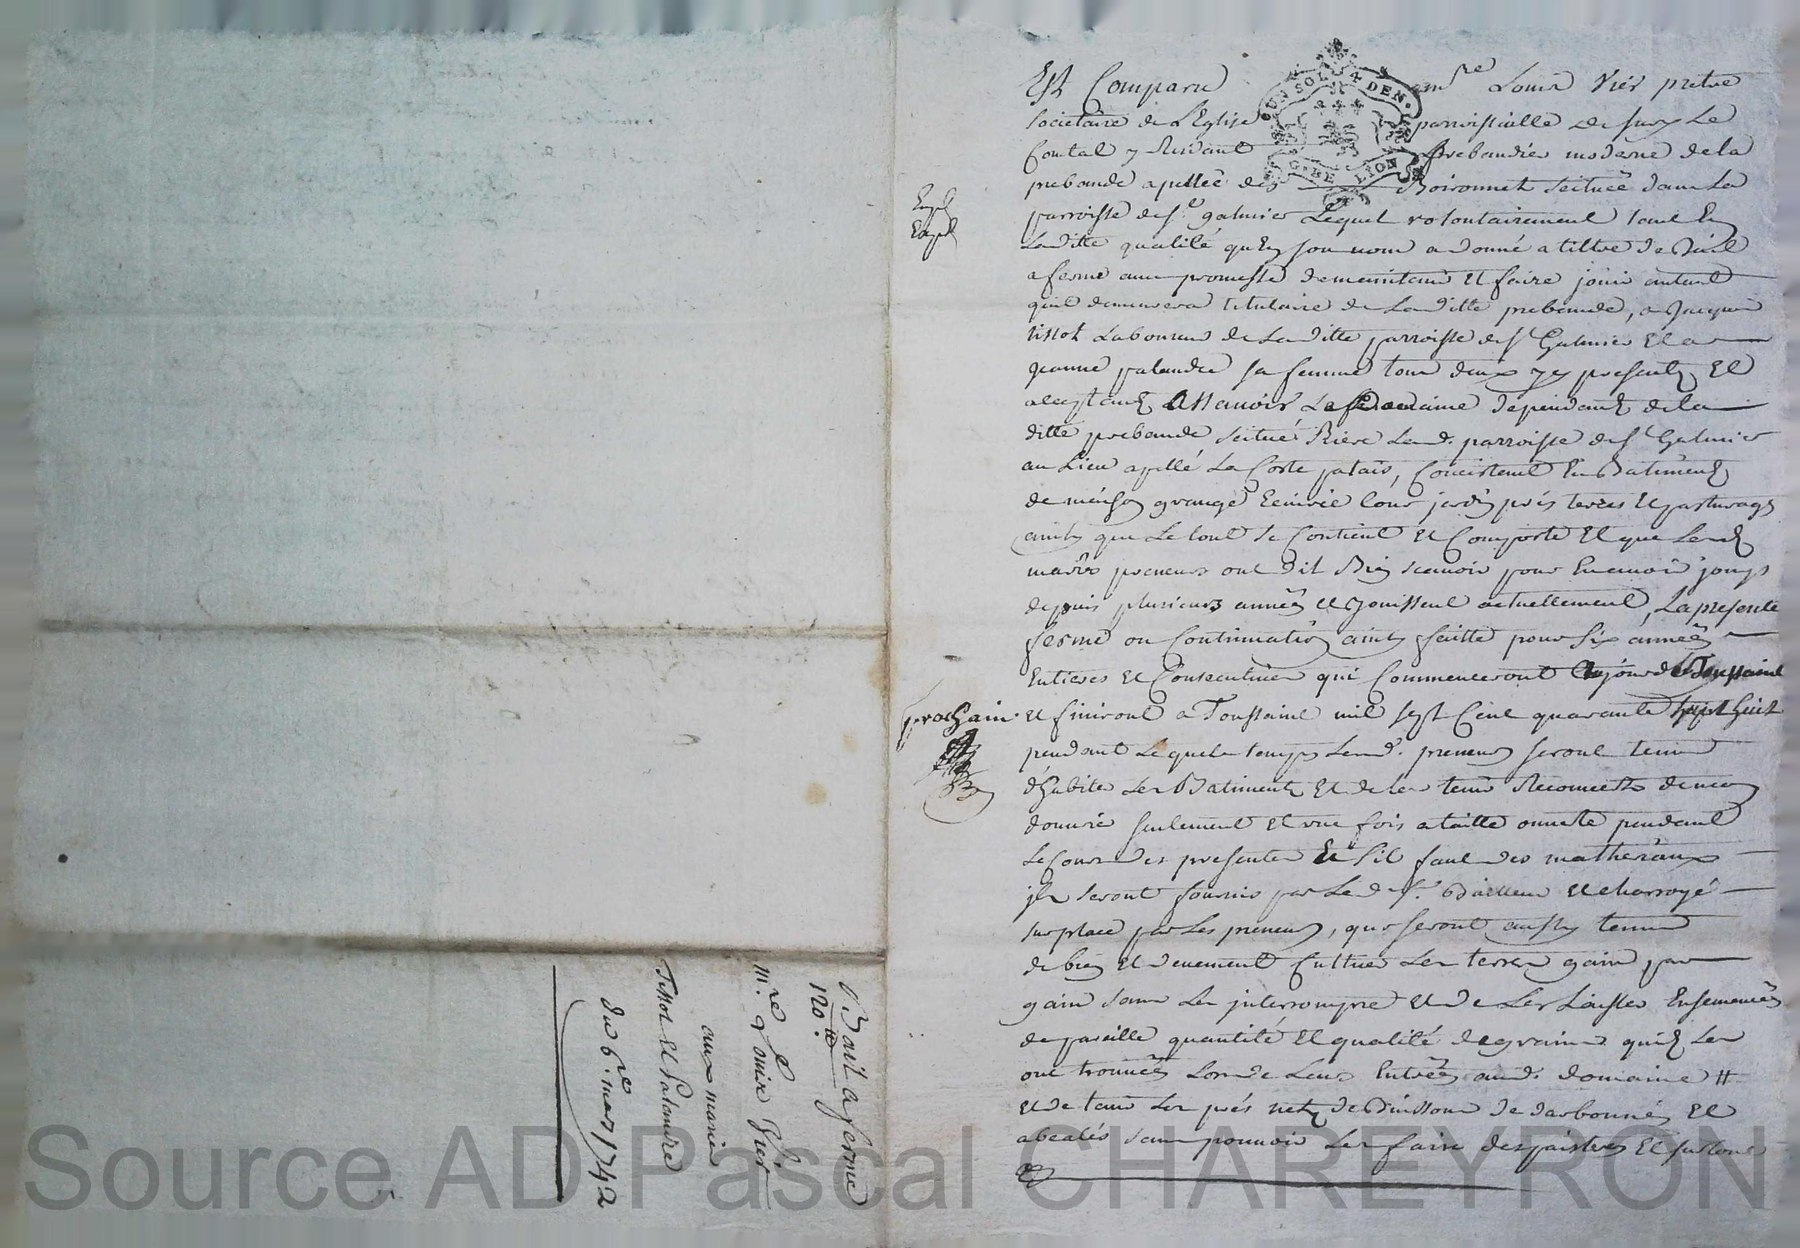 Est Comparu mre Louis Viér pretre
societaire de L'Eglise parroissialle de sury Le
Comtal y Residant prebandier moderne de la
prebande apellée des Boironnet scituée dans La
parroisse de St galmier Lequel volontairement tant En
Laditte qualité qu'En son nom a donné a tiltre de Bail
a ferme avec promesse de maintenir Et faire joüir autant
quil demeurera titulaire de Laditte prebande, a Jacques
tissot Laboureur de Laditte parroisse de St Galmier Et a
Jeanne palandre sa femme tous deux yçy presents Et
aceptants Assavoir Le domaine dependant de la
ditte prebande scitué Riere Lad. parroisse de St Galmier
au Lieu apellé La Coste palais, Concistant En Batiments
de maison grange Ecurie Cour jardin prés terres Et pasturages
ainsy que Le tout se Contient Et Comporte Et que Lesd
mariés preneurs ont dit Bien scavoir pour En avoir jouy
depuis plusieurs années Et Jouissent actuellement, La presente
ferme ou Continuation ainsy faitte pour six années
Entieres Et Consecutives qui Commenceront Au jour de Toussaint
prochain Et finiront a Toussaint mil sept Cent quarante huit
pendant Lequel temps Lesd. preneurs seront tenus
d'habiter Les Batiments Et de Les tenir Recouverts de main
d'ouvrié seulement Et une fois a taille ouverte pendant
Le Cours des presentes Et s'il faut des matheriaux
ils seront fournis par Le d. Sr. Bailleur Et charroyé
sur place par Les preneurs, qui seront aussy tenus
de bien Et deuement Cultiver Les terres gain par
gain sans Les jnterrompre Et de Les Laisser Ensemencées
de pareille quantité Et qualité de grains qu'ils Les
ont trouvées Lors de Leur Entrée aud. domaine
Et de tenir Les prés nets de Buissons de darbonnés Et
abealés sans pouvoir Les faire despaistre Et surtout
Bail a ferme
120.tt
mre Louis Viér
aux mariés
Tissot Et Palandre
du 6me. mars 1742
UN SOL 4 DEN.
G.RE LYON
Source AD Pascal CHAREYRON